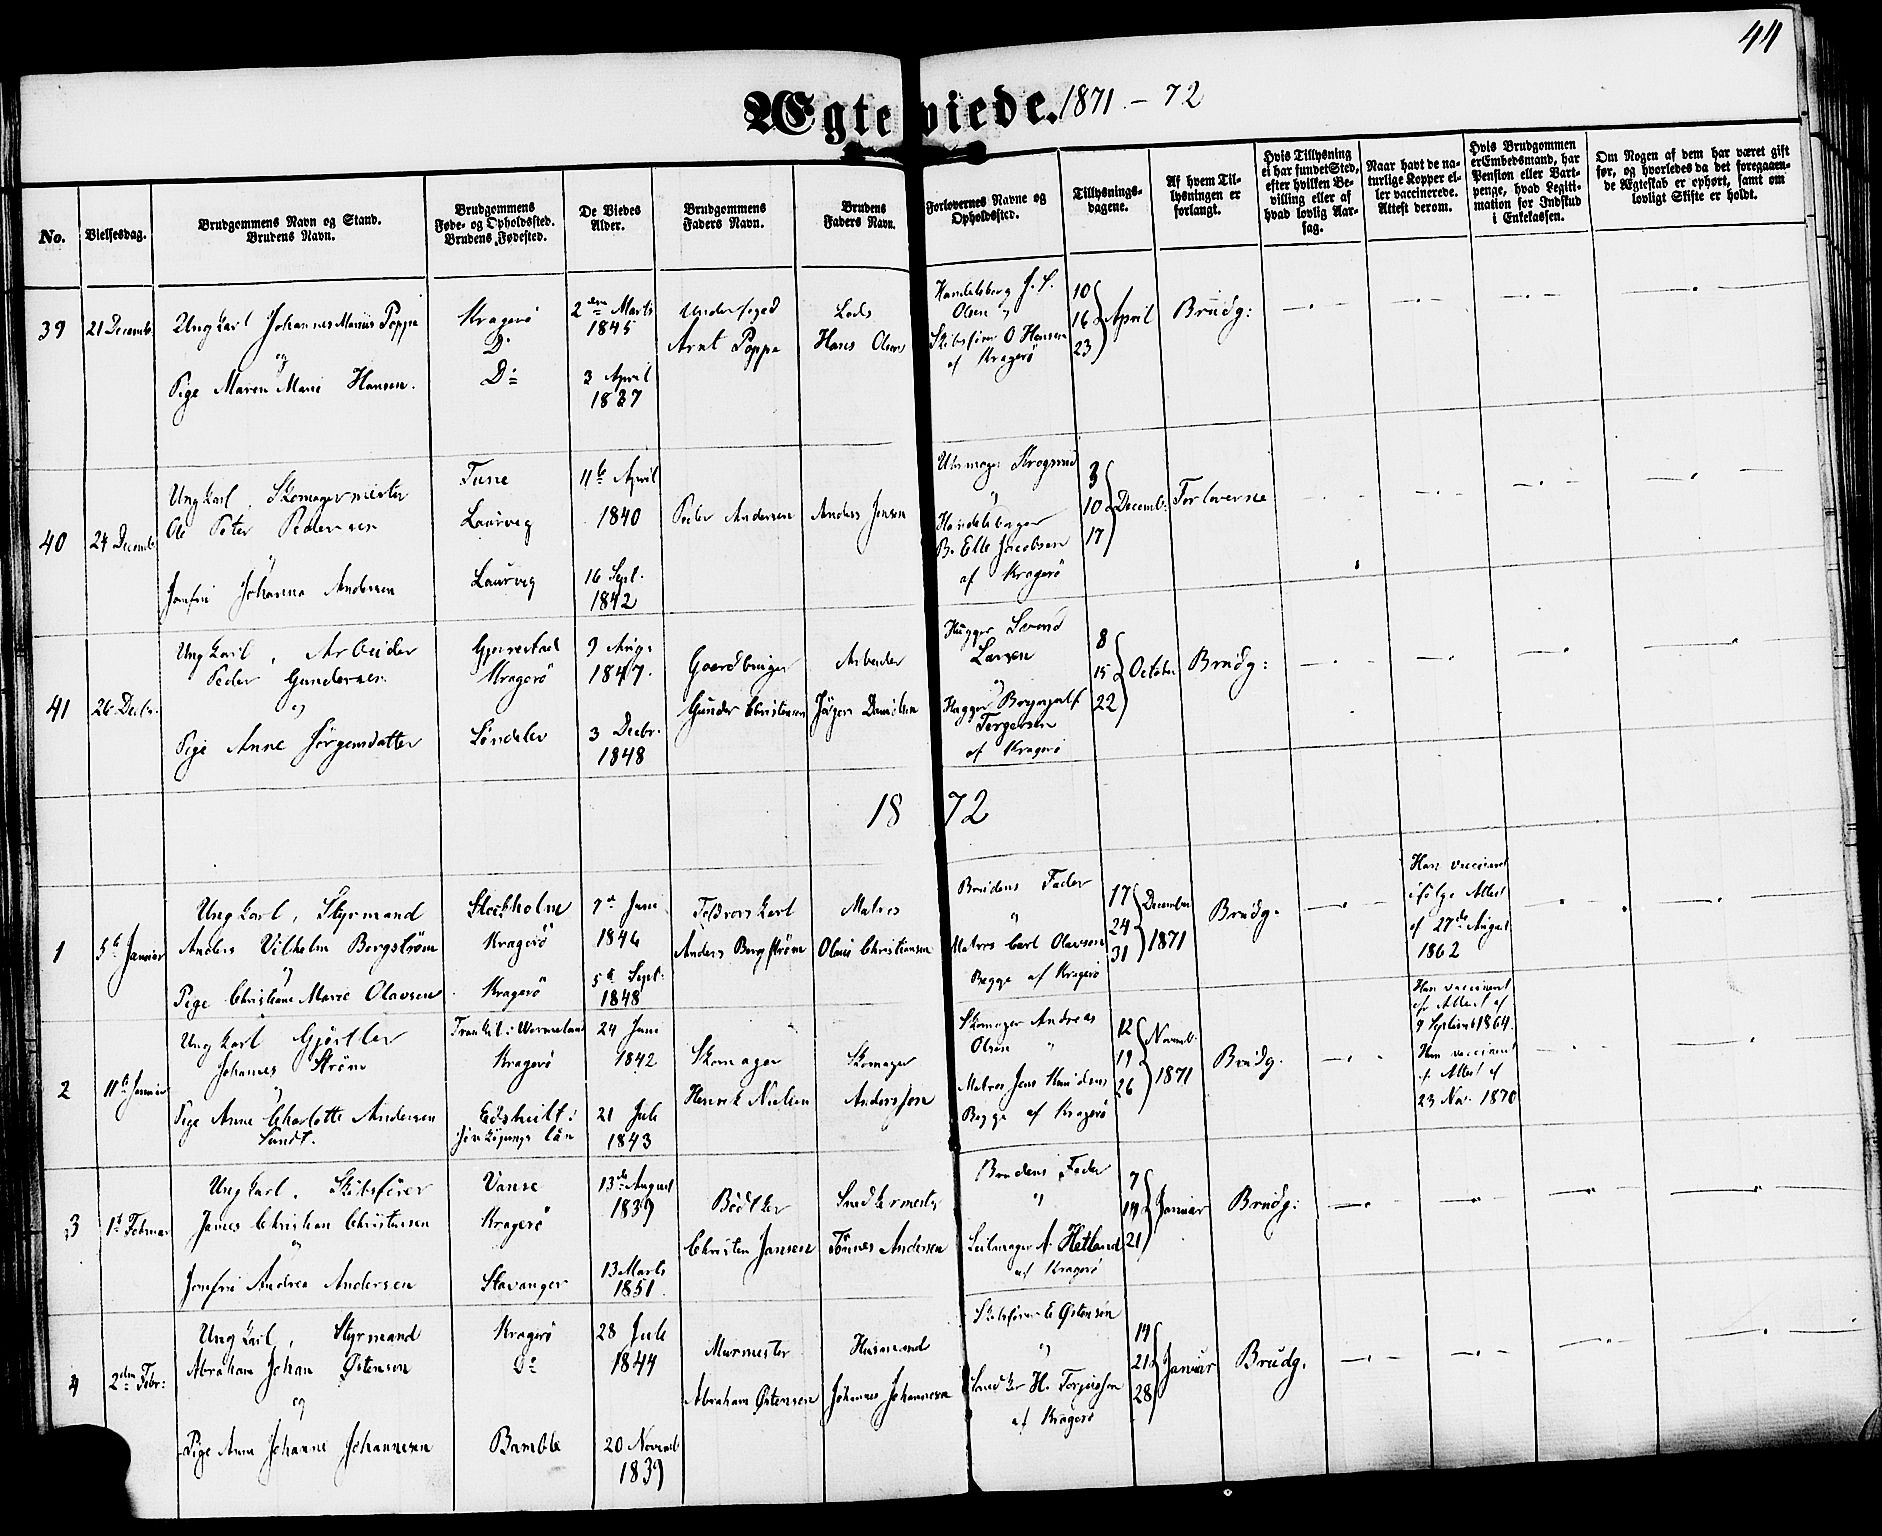 44
Ægteviede. 1871 - 72
No.
Vielsesdag.
Brudgommens Navn og Stand.
Brudens Navn.
Brudgommens
Føde- og Opholdssted.
Brudens Fødested.
De Viedes
Alder.
Brudgommens
Faders Navn.
Brudens
Faders Navn.
Forlovernes Navne og
Opholdssted.
Tillysnings-
dagene.
Af hvem Til-
lysningen er
forlangt.
Hvis Tillysning
ei har fundet Sted,
efter hvilken Be-
villing eller af
hvad lovlig Aar-
sag.
Naar havt de na-
turlige Kopper el-
ler vaccinerede.
Attest derom.
Hvis Brudgommen
er Embedsmand, har
Pension eller Vart-
penge, hvad Legiti-
mation for Indskud
i Enkekassen.
Om Nogen af dem har været gift
før, og hvorledes da det foregaaen-
de Ægteskab er ophørt, samt om
lovligt Skifte er holdt.
39
21 Decemb
Ungkarl Johannes Marius Poppe
og
Pige Maren Marie Hansen.
Kragerö
Do
Do
2den Marts
1845
3 April
1837
Underfoged
Arnt Poppe
Lods
Hans Olsen
Handelsborg J. S.
Olsen
Skibsförer O Hansen
af Kragerö
10
16 April
23
Brudg:
40
24 Decemb
Ungkarl, Skomagermester
Ole Peter Pedersen
Jomfru Johanne Andersen
Tune
Laurvig
Laurvig
11te April
1840
16 Sept.
1842
Peder Andersen
Anders Jensen
Uhrmager Krogsrud
Handelsborger
B. Elle Jacobsen
af Kragerö
3
10 Decemb:
17
Forloverne
41
26 Decbr.
Ungkarl, Arbeider
Peder Gundersen
og
Pige Anne Jörgensdatter
Gjerrestad
Kragerö
Söndelev
9 Aug:
1847.
3 Decbr.
1848
Gaardbruger
Gunder Christensen
Arbeider
Jörgen Danielsen
Hugger Svend
Larsen
Hugger Brynjulf
Tergersen
af Kragerö
8
15 October
22
Brudg:
18 72
1
5te Januar
Ungkarl, Styrmand
Anders Vilhelm Bergström
Pige Christiane Marie Olavsen
Stockholm
Kragerö
Kragerö
7de Juni
1846
5te Sept.
1848
Anders Bergström
Matros
Olaus Christiansen
Brudens Fader
"
Matros Carl Olavsen
Begge af Kragerö
17 December
24
31 1871
Brudg.
Han vaccineret
ifölge Attest
af 27de August
1862
2
11te Januar
Ungkarl Gjörtler
Johannes Ström
Pige Anne Charlotte Andersen
Sundt.
Kragerö
Edshult i
Jönköpings Län
24 Juni
1842
21 Juli
1843
Skomager
Henrik Nielsen
Skomager
Andersson
Skomager Andreas
Olsen
Matros Jens Knudsen
Begge af Kragerö
12 Novemb.
19
26 1871
Brudg.
Han vaccineret
af Attest af
9 Septemb 1864.
Hun vaccineret
af Attest af
23 Nov. 1870
3
1st Februar
Ungkarl, Skibsförer
James Christian Christensen
Jomfru Andrea Andersen
Vanse
Kragerö
Stavanger
13de August
1839
13 Marts
1851.
Bödker
Christen Jansen
Snedkermester
Tönnes Andersen
Brudens Fader
"
Seilmager A. Hetland
af Kragerö
7
14 Januar
21
Brudg:
4
2den Febr:
Ungkarl, Styrmand
Abraham Johan Østensen
og
Pige Anne Johanne Johannesen
Kragerö
Do
Bamble
28 Juli
1844
20 Novemb
1839
Murmester
Abraham Østensen
Husmand
Johannes Johannesen
Skibsförer E Østensen
"
Snedker H. Torjussen
af Kragerö
14
21 Januar
28
Brudg.